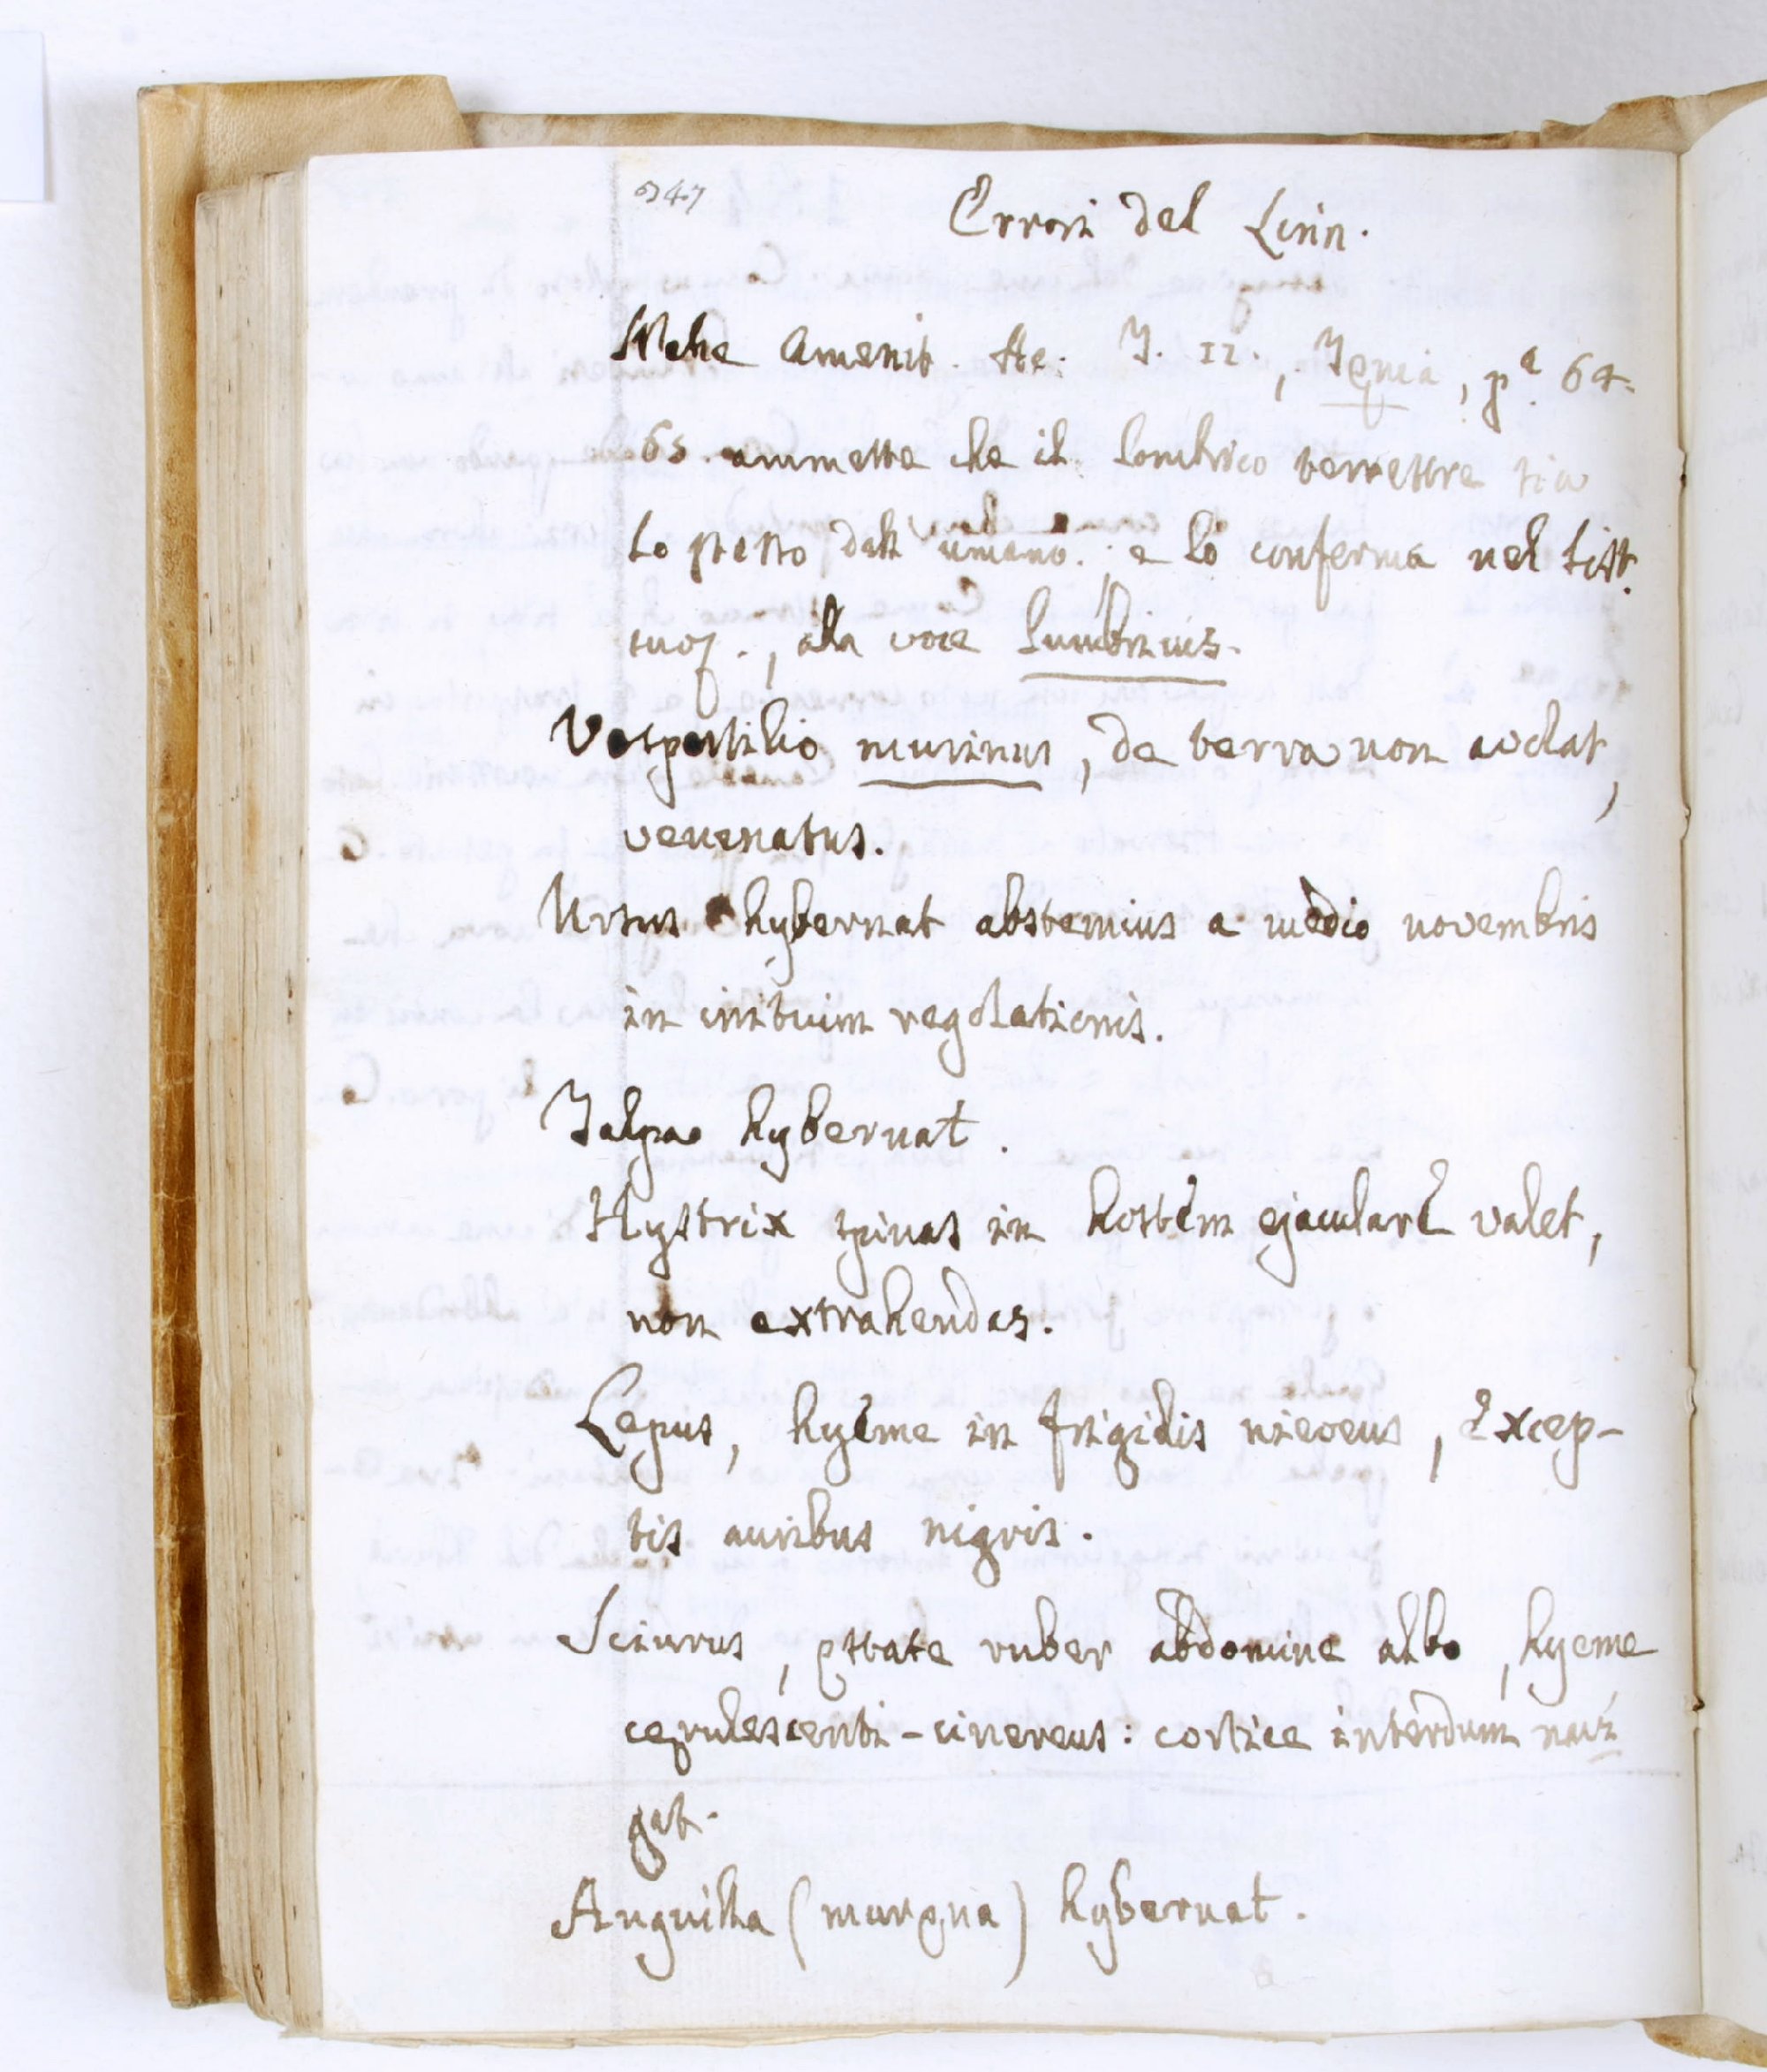 247
Errori del Linn.
Nelle Amenit. Ac. T. II., Tęnia, p.ª 64.
65. ammette che il lombrico terrestre sia
lo stesso dell'umano. e lo conferma nel sist.
suo, alla voce lumbricus.
Vespertilio murinus, de terra non avolat,
venenatus.
Ursus hybernat abstemius a medio novembris
in initium regelationis.
Talpa hybernat.
Hystrix spinas in hostem ejaculare valet,
non extrahendas.
Lepus, hyeme in frigidis niveus, excep-
tis auribus nigris.
Sciurus, ęstate ruber abdomine albo, hyeme
cęrulescenti-cinereus: cortice interdum navi
gat.
Anguilla (muręna) hybernat.